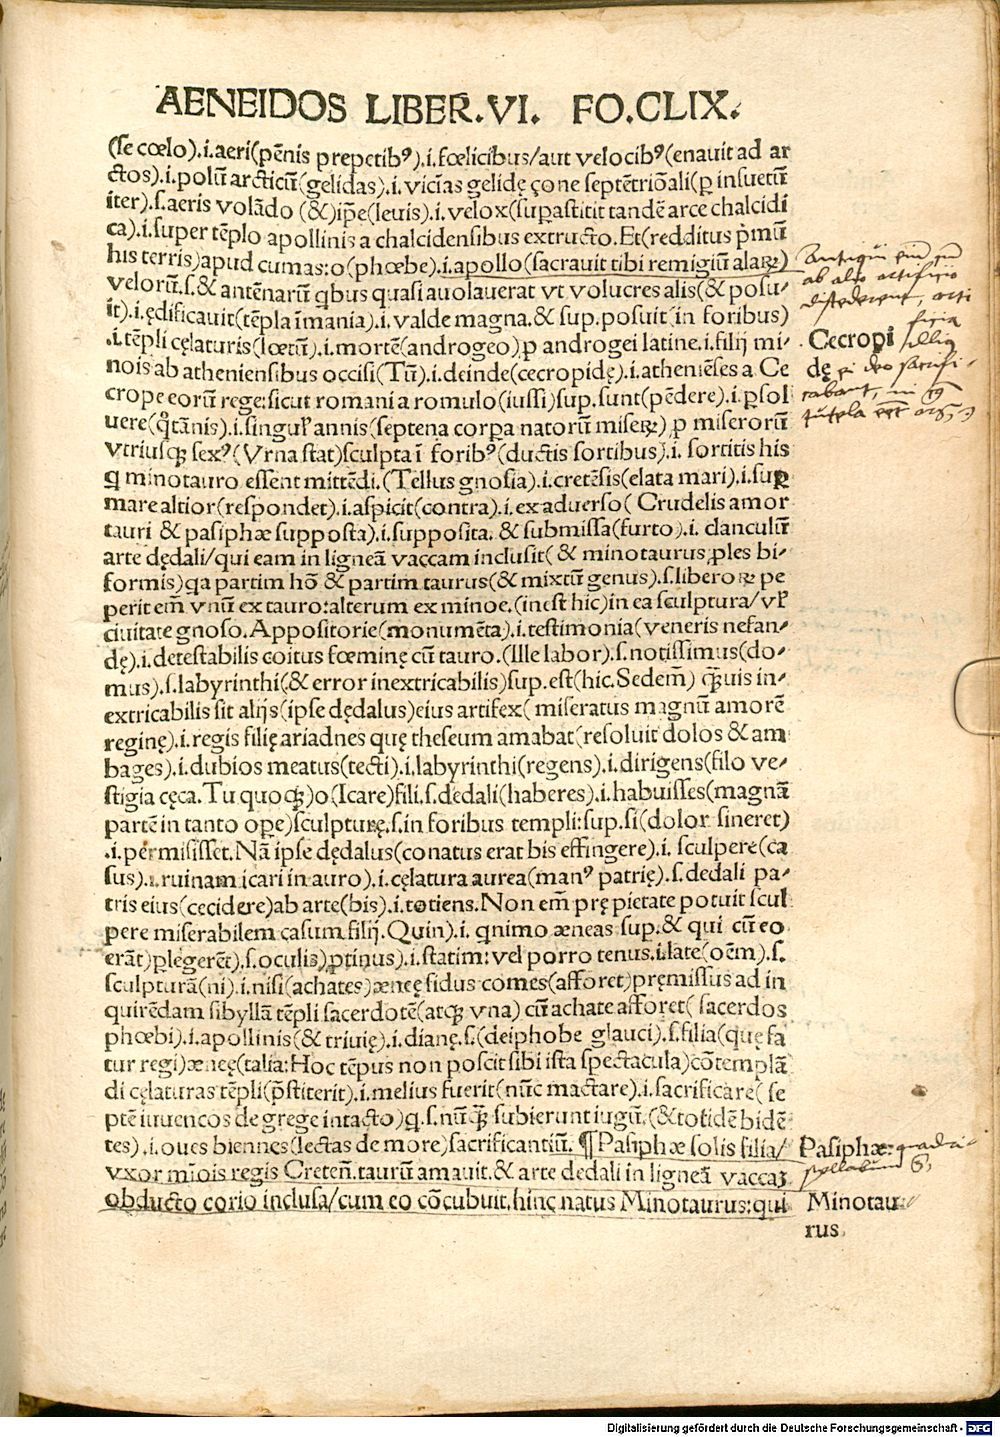 AENEIDOS LIBER.VI. FO.CLIX.
(se cœlo).i.aeri(pēnis prepetibꝰ).i.fœlicibus/aut velocibꝰ(enauit ad ar
ctos).i.polū arcticū(gelidas).i.vicīas gelidę çone septētriōali(ꝑ insuetū
iter).s.aeris volādo (&)ip̄e(leuis).i.velox(suꝑastitit tandē arce chalcidi
ca).i.super tēplo apollinis a chalcidensibus extructo.Et(redditus p̄mū
his terris)apud cumas:o(phœbe).i.apollo(sacrauit tibi remigiū alaꝝ)
velorū.s.& antēnarū qbus quasi auolauerat vt volucres alis(& posu⸗
it).i.ędificauit(tēpla īmania).i.valde magna.& sup.posuit(in foribus)
.i.tēpli cęlaturis(lœtū).i.mortē(androgeo)ꝑ androgei latine.i.filij mi⸗
nois ab atheniensibus occisi(Tū).i.deinde(cecropidę).i.atheniēses a Ce
crope eorū rege:sicut romani a romulo(iussi)sup.sunt(pēdere).i.ꝑsol
uere(qtānis).i.singul' annis(septena corꝑa natorū miseꝝ)ꝑ miserorū
vtriusqꝫ sexꝰ(Vrna stat)sculpta ī foribꝰ(ductis sortibus).i. sortitis his
q minotauro essent mittēdi.(Tellus gnosia).i.cretēsis(elata mari).i.suꝑ
mare altior(respondet).i.aspicit(contra).i.ex aduerso( Crudelis amor
tauri & pasiphæ supposta).i.supposita. & submissa(furto).i. clanculū
arte dędali/qui eam in ligneā vaccam inclusit( & minotaurus ꝓles bi⸗
formis)qa partim hō & partim taurus(& mixtū genus).s.liberoꝝ pe
perit em̄ vnū ex tauro:alterum ex minoe.(inest hic)in ea sculptura/vl'
ciuitate gnoso.Appositorie(monumēta).i.testimonia(veneris nefan⸗
dę).i.detestabilis coitus fœminę cū tauro.(Ille labor).s.notissimus(do⸗
mus).s.labyrinthi(& error inextricabilis)sup.est(hic.Sedem̄) qꝫuis in⸗
extricabilis sit alijs(ipse dędalus)eius artifex( miseratus magnū amorē
reginę).i.regis filię ariadnes quę theseum amabat(resoluit dolos & am
bages).i.dubios meatus(tecti).i.labyrinthi(regens).i.dirigens(filo ve⸗
stigia cęca.Tu quoqꝫ)o(Icare)fili.s.dedali(haberes).i.habuisses(magnā
partē in tanto oꝑe)sculpturę.s.in foribus templi:sup.si(dolor sineret)
.i.permisisset.Nā ipse dędalus(conatus erat bis effingere).i. sculpere(ca
sus).i.ruinam icari in auro).i.cęlatura aurea(manꝰ patrię).s.dedali pa⸗
tris eius(cecidere)ab arte(bis).i.totiens.Non em̄ prę pietate potuit scul
pere miserabilem casum filij.Quin).i. qnimo æneas sup.& qui cū eo
erāt)ꝑlegerēt).s.oculis)ꝓtinus).i.statim:vel porro tenus.i.late(oēm).s.
sculpturā(ni).i.nisi(achates)æneę fidus comes(afforet)pręmissus ad in
quirēdam sibyllā tēpli sacerdotē(atqꝫ vna) cū achate afforet( sacerdos
phœbi).i.apollinis(& triuię).i.dianę.s.(deiphobe glauci).s.filia(quę fa
tur regi)æneę(talia:Hoc tēpus non poscit sibi ista spectacula)cōtemplā
di cęlaturas tēpli(p̄stiterit).i.melius fuerit(nūc mactare).i.sacrificare( se
ptē iuuencos de grege intacto)q.s.nūqꝫ subierunt iugū.(&totidē bidē
tes).i.oues biennes(lectas de more)sacrificantiū. ¶Pasiphæ solis filia/
vxor mīois regis Creteñ.taurū amauit.& arte dedali in ligneā vaccaꝫ
obducto corio inclusa/cum eo cōcubuit.hinc natus Minotaurus:qui
ab alio artificio
Cecropi
dę
Pasiphæ:
Minotau
rus.
Digitalisierung gefördert durch die Deutsche Forschungsgemeinschaft - DFG